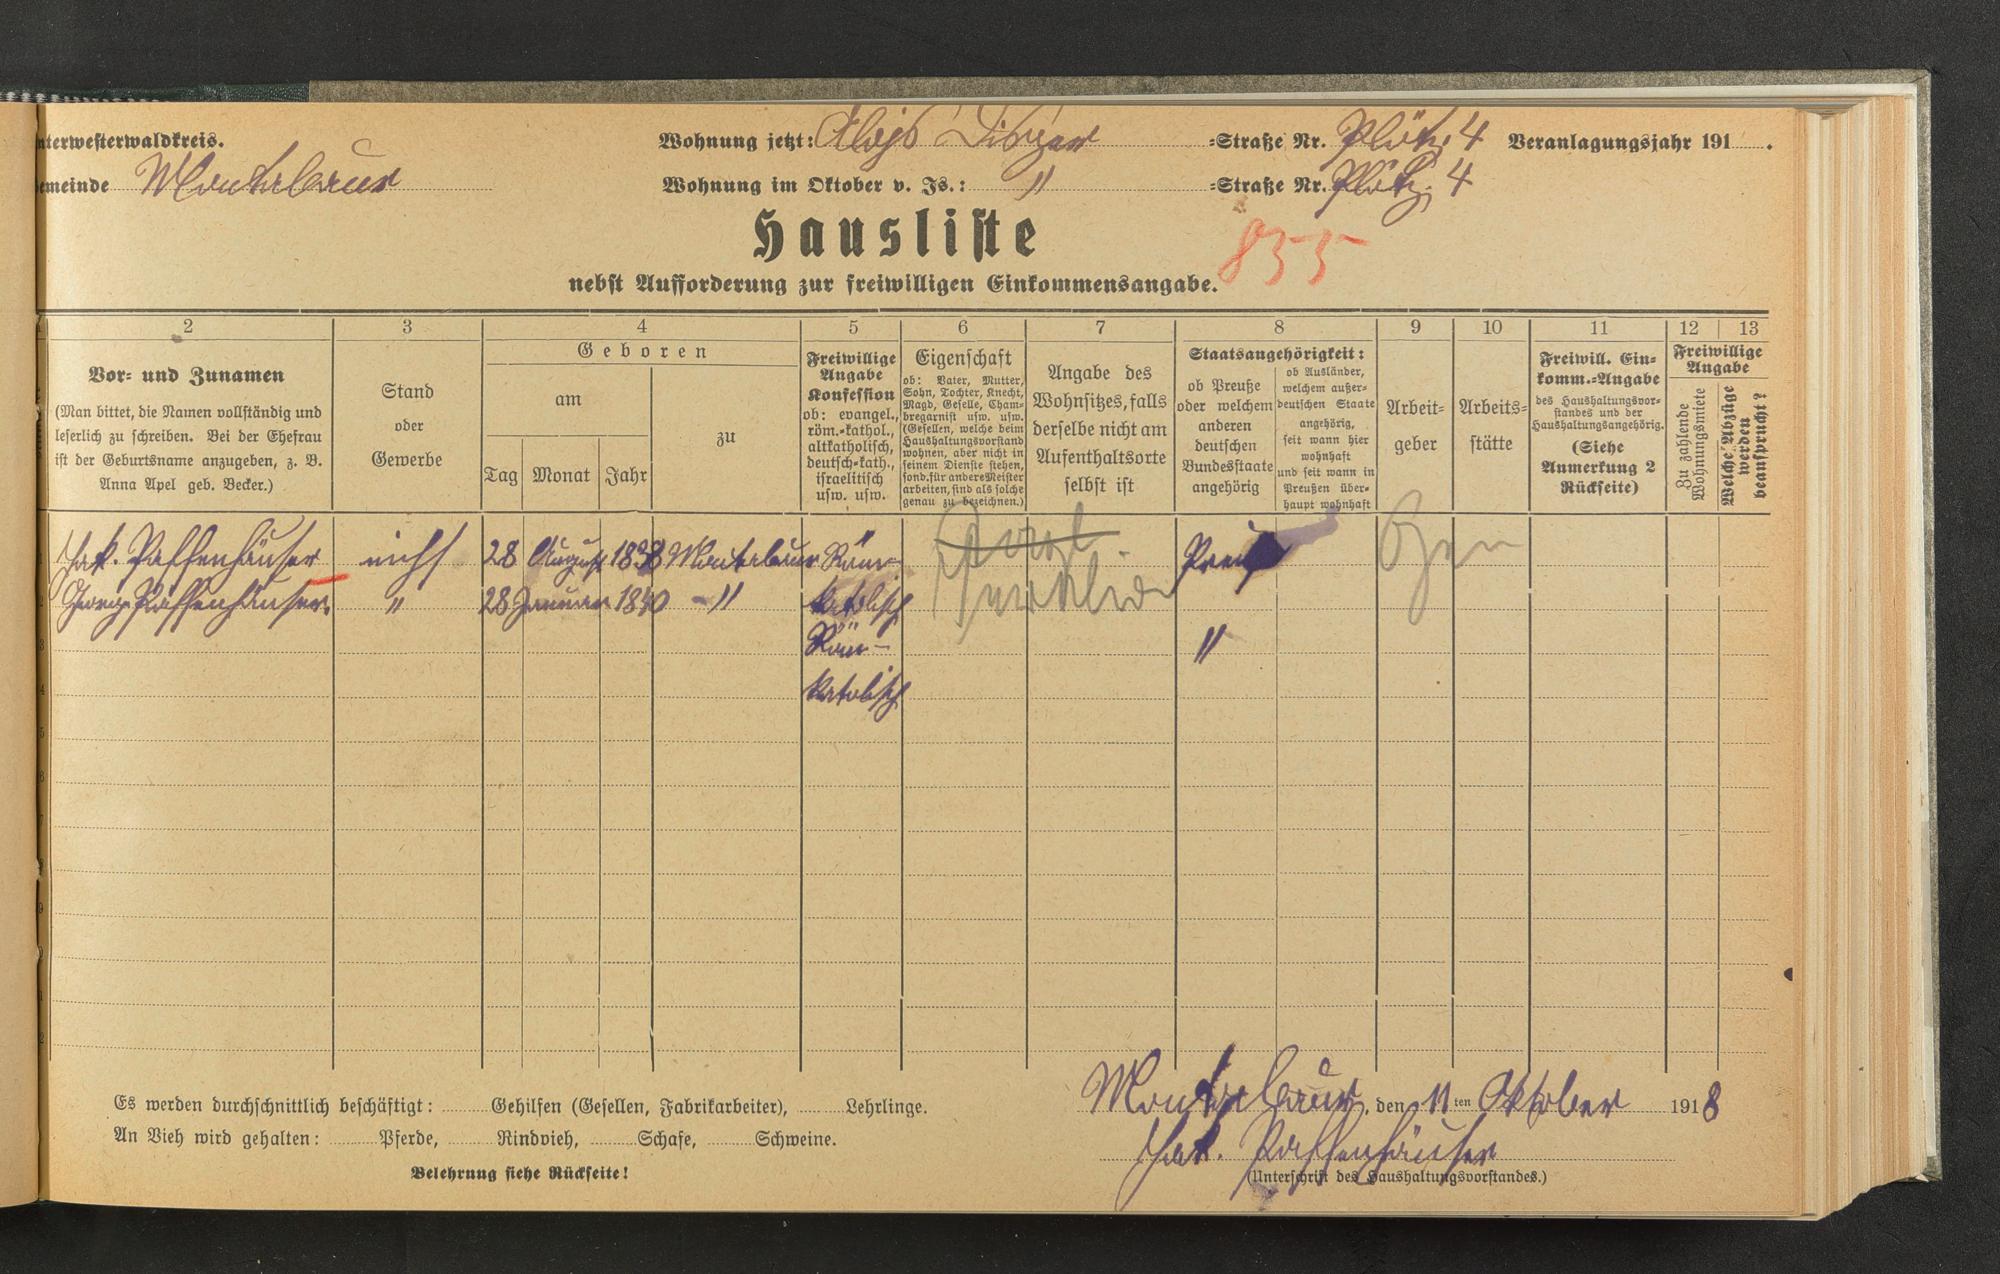 nterwesterwaldkreis.
Wohnung jetzt: Alojs -Straße Nr. Plötz. 4 Veranlagungsjahr 191 .
emeinde Montabaur
Wohnung im Oktober v. Js.: " -Straße Nr. Plötz. 4
Hausliste
855
nebst Aufforderung zur freiwilligen Einkommensangabe.
2
Vor- und Zunamen
(Man bittet, die Namen vollständig und
leserlich zu schreiben. Bei der Ehefrau
ist der Geburtsname anzugeben, z. B.
Anna Apel geb. Becker.)
3
Stand
oder
Gewerbe
4
Geboren
am
Tag Monat Jahr
zu
5
Freiwillige
Angabe
Konfession
ob: evangel.,
röm.-kathol.,
altkatholisch,
deutsch-kath.,
israelitisch
usw. usw.
6
Eigenschaft
ob: Vater, Mutter,
Sohn, Tochter, Knecht,
Magd, Geselle, Cham-
bregarnist usw. usw.
(Gesellen, welche beim
Haushaltungsvorstand
wohnen, aber nicht in
seinem Dienste stehen,
sond. für andere Meister
arbeiten, sind als solche
genau zu bezeichnen.)
7
Angabe des
Wohnsitzes, falls
derselbe nicht am
Aufenthaltsorte
selbst ist
8
Staatsangehörigkeit:
ob Preuße
oder welchem
anderen
deutschen
Bundesstaate
angehörig
ob Ausländer,
welchem außer-
deutschen Staate
angehörig,
seit wann hier
wohnhaft
und seit wann in
Preußen über-
haupt wohnhaft
9
Arbeit-
geber
10
Arbeits-
stätte
11
Freiwill. Ein-
komm.-Angabe
des Haushaltungsvor-
standes und der
Haushaltungsangehörig.
(Siehe
Anmerkung 2
Rückseite)
12 13
Freiwillige
Angabe
Zu zahlende
Wohnungsmiete
Welche Abzüge
werden
beansprucht?
Jak. Paffenhäuser nichts 28 August 1838 Montabaur Röm-
Georg Paffenhäuser " 28 Januar 1840 -"
katolisch
Röm-
katolisch
Preuß
"
Montabaur, den 11ten Oktober 1918
Jak. Paffenhäuser
(Unterschrift des Haushaltungsvorstandes.)
Es werden durchschnittlich beschäftigt: Gehilfen (Gesellen, Fabrikarbeiter), Lehrlinge.
An Vieh wird gehalten: Pferde, Rindvieh, Schafe, Schweine.
Belehrung siehe Rückseite!